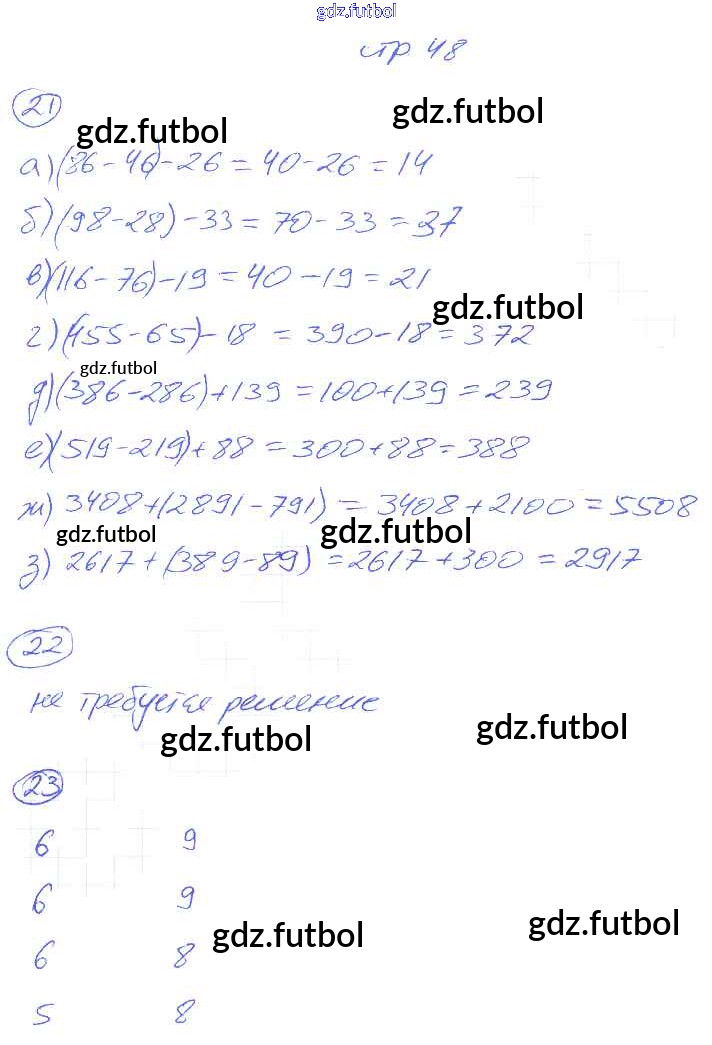 gdz.futbol
стр 48
21
gdz.futbol
gdz.futbol
а) (86-46)-26=40-26=14
б) (98-28)-33=70-33=37
в) (116-76)-19=40-19=21
gdz.futbol
г) (455-65)-18=390-18=372
gdz.futbol
д) (386-286)+139=100+139=239
е) (519-219)+88=300+88=388
ж) 3408+(2891-791)=3408+2100=5508
gdz.futbol
gdz.futbol
з) 2617+(389-89)=2617+300=2917
22
не требуется решение
gdz.futbol
gdz.futbol
23
6 9
6 9
gdz.futbol
gdz.futbol
6 8
5 8